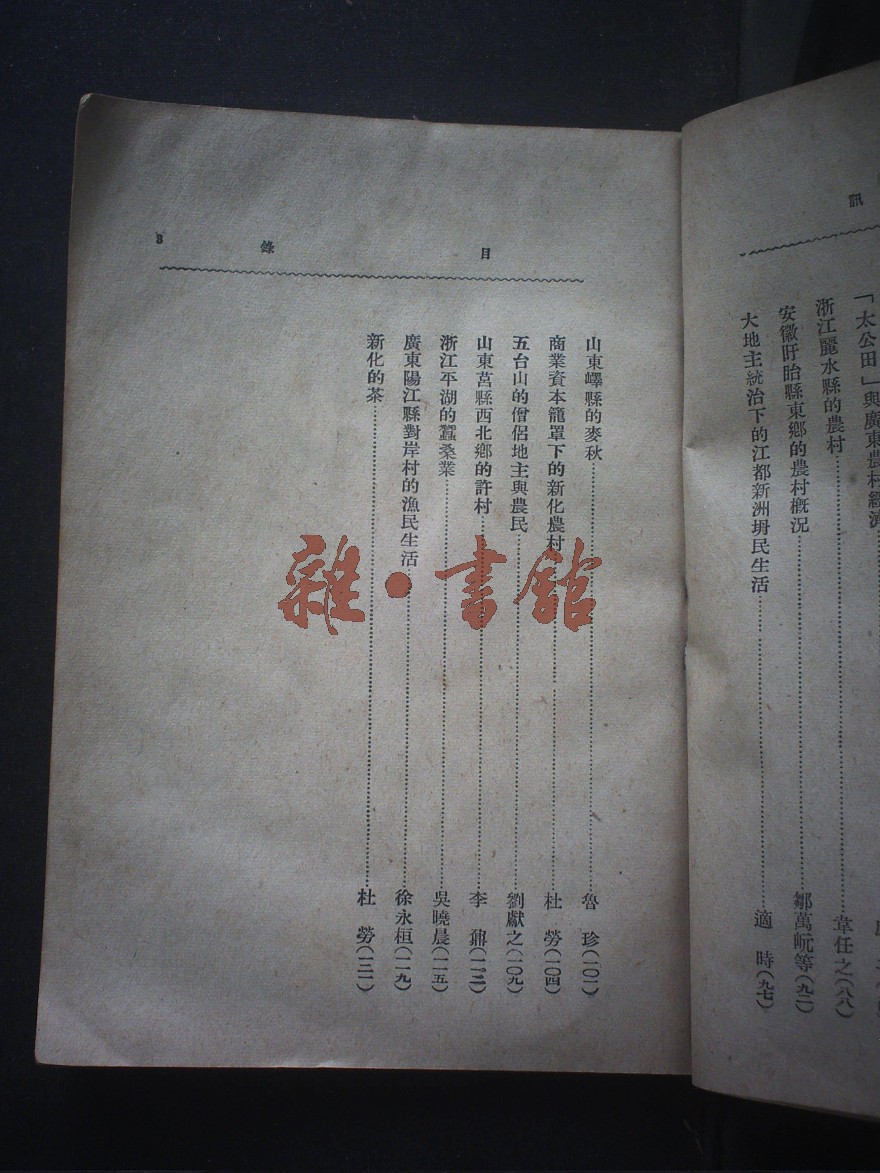 訊
「太公田」與廣東農村經濟
浙江麗水縣的農村……韋任之(八八)
安徽盱眙縣東鄉的農村概況……鄒萬等(九二)
大地主統治下的江都新洲坍民生活……適 時(九七)
目 錄 3
山東嶧縣的麥秋……魯 珍(一〇一)
商業資本籠罩下的新化農村……杜 勞(一〇四)
五台山的僧侶地主與農民……劉獻之(一〇九)
山東莒縣西北鄉的許村……李 鼐(一一二)
浙江平湖的蠶桑業……吳曉晨(一一五)
廣東陽江縣對岸村的漁民生活……徐永桓(一一九)
新化的茶……杜 勞(一三一)
雜·書館